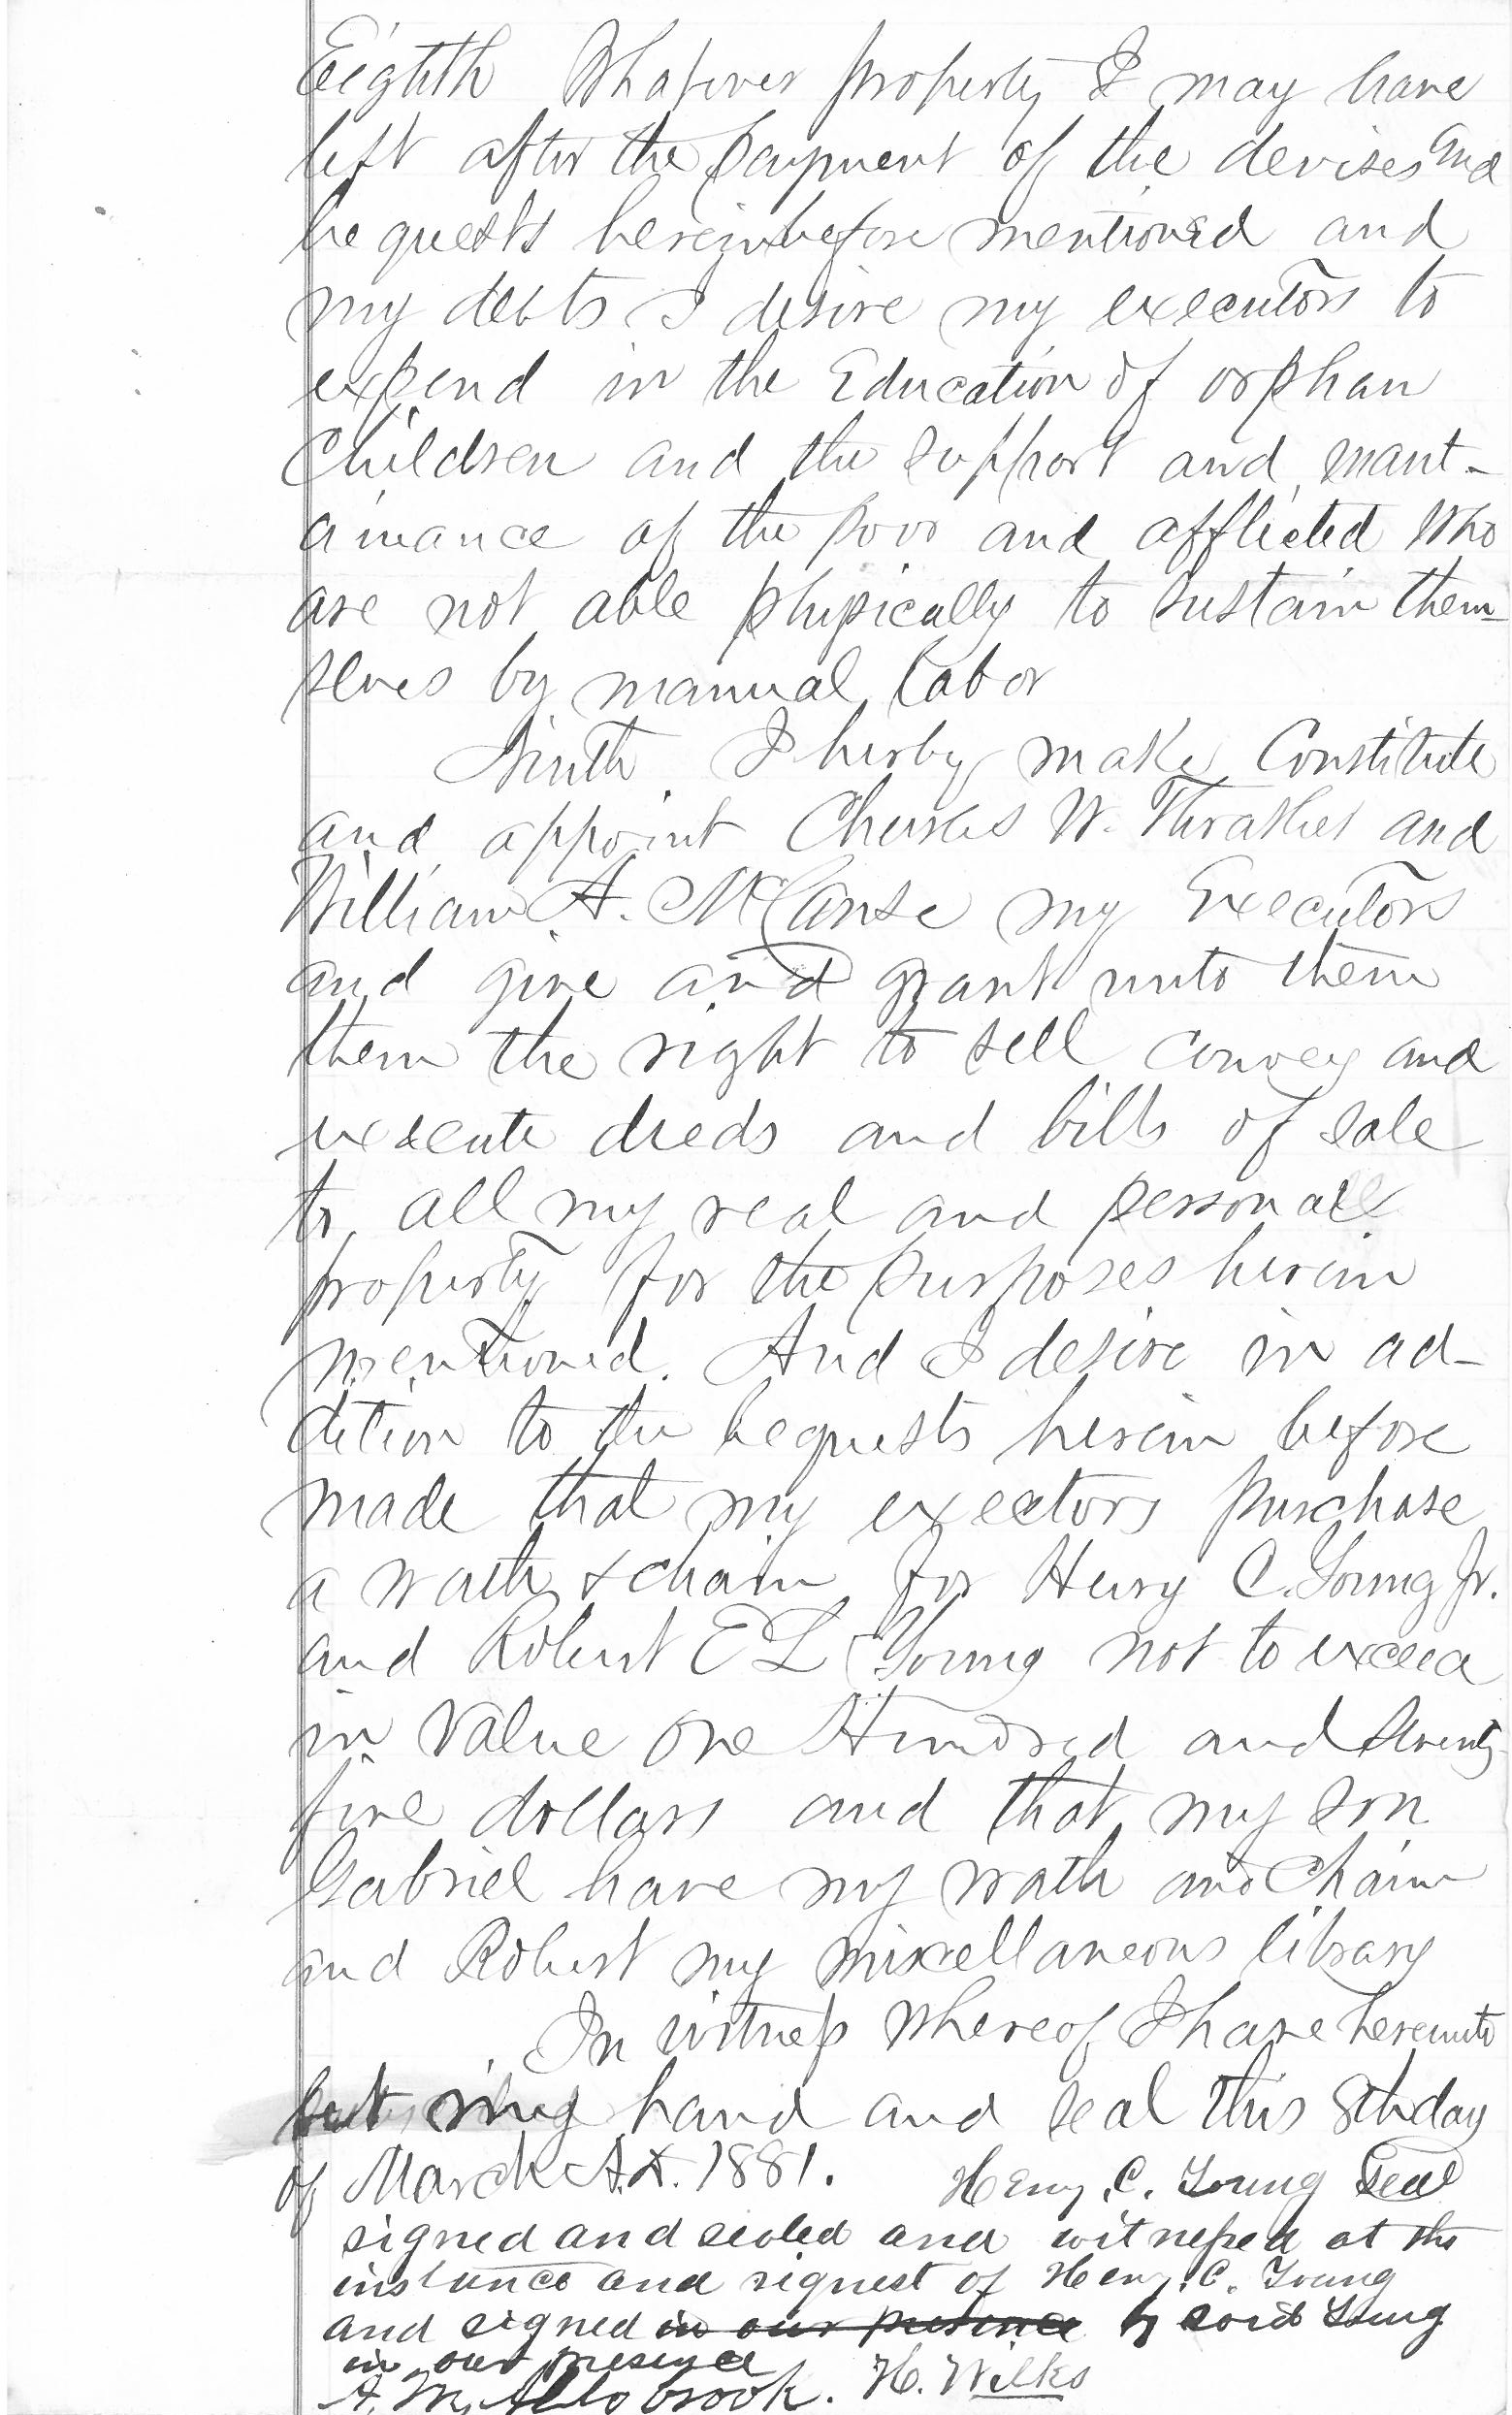 Eighth Whatever property I may have
left after the payment of the devises and
bequests hereinbefore mentioned and
my debts I desire my executors to
expend in the Education of orphan
Children and the support and maint-
ainance of the poor and afflicted who
are not able physically to sustain them-
selves by manual labor
Ninth I hereby make Constitute
and appoint Charles W. Thrasher and
William A. McCanse my Executors
and give and grant unto them
them the right to sell convey and
execute deeds and bills of sale
to all my real and personal
property for the purposes herein
mentioned. And I desire in ad-
dition to the bequests herein before
made that my exectors purchase
a wath & chain for Henry C. Young Jr.
and Robert E L Young not to exceed
in value one Hundred and Seventy
five dollars and that my son
Gabriel have my wath and Chain
and Robert my miscellaneous library
In witness whereof I have hereunto
set my hand and seal this 8th day
of March A.D. 1881. Henry C. Young Seal
signed and sealed and witnessed at the
instance and request of Henry C. Young
and signed in our presence by said Young
in our presence
H. Wilks